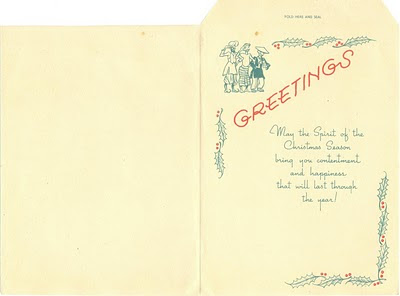 FOLD HERE AND SEAL
GREETINGS
May the Spirit of the
Christmas Season
bring you contentment
and happiness
that will last through
the year!